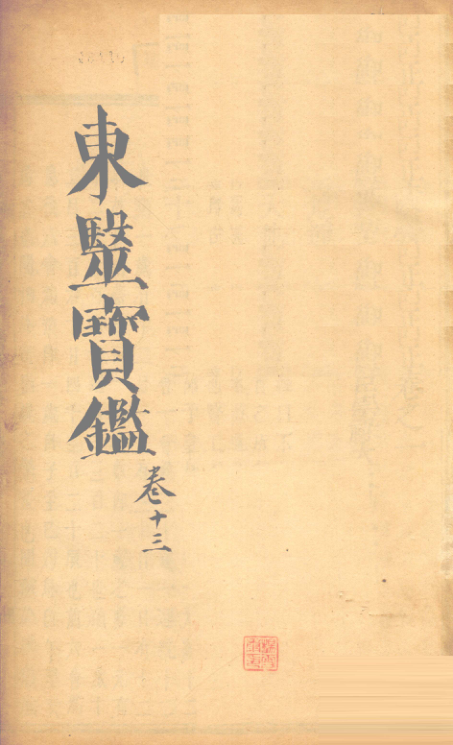 東毉寶鑑
卷十三